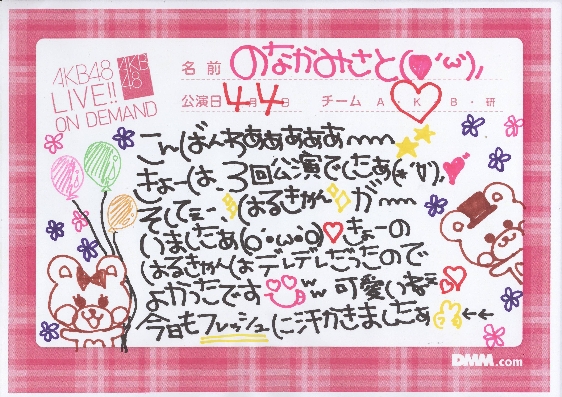 AKB48
LIVE!!
ON DEMAND
AKB
48
名前 のなかみさと(●'ω')ノ
公演日 4月4日 チーム A・K・B・研
こんばんわあぁぁぁぁ〜〜
きょーは、3回公演でしたぁ(*'∀')ノ
そしてえー、はるきゃんが〜
いましたぁ(o・ω・o)♡きょーの
はるきゃんはデレデレだったので
よかったです ww 可愛いねぇ
今日もフレッシュに汗かきましたぁ ←←
DMM.com